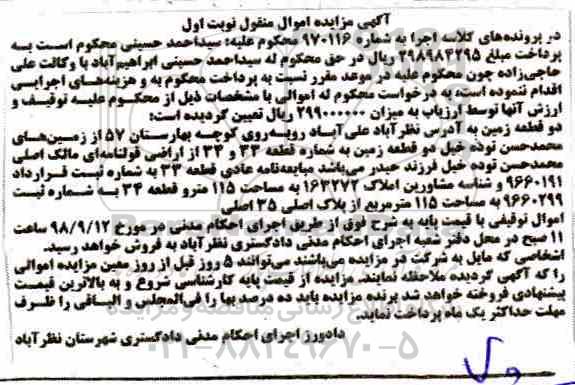 آگهی مزایده اموال منقول نوبت اول
در پرونده‌های کلاسه اجرا به شماره ۹۷۰۱۱۶ محکوم علیه: سیداحمد حسینی محکوم است به
پرداخت مبلغ ۲۹۸۹۸۴۲۹۵ ریال در حق محکوم له سیداحمد حسینی ابراهیم‌آباد با وکالت علی
حاجی‌زاده چون محکوم علیه در موعد مقرر نسبت به پرداخت محکوم به و هزینه‌های اجرایی
اقدام ننموده است، به درخواست محکوم له اموالی با مشخصات ذیل از محکوم علیه توقیف و
ارزش آنها توسط ارزیاب به میزان ۲۹۹۰۰۰۰۰۰ ریال تعیین گردیده است:
دو قطعه زمین به آدرس نظرآباد علی‌آباد روبه‌روی کوچه بهارستان ۵۷ از زمین‌های
محمدحسن توده خیل دو قطعه زمین به شماره قطعه ۳۳ و ۳۴ از اراضی قولنامه‌ای مالک اصلی
محمدحسن توده خیل فرزند حیدر می‌باشد مبایعه‌نامه عادی قطعه ۳۳ به شماره ثبت قرارداد
۹۶۶۰۱۹۱ و شناسه مشاورین املاک ۱۶۳۲۷۲ به مساحت ۱۱۵ مترو قطعه ۳۴ به شماره ثبت
۹۶۶۰۲۹۹ به مساحت ۱۱۵ مترمربع از پلاک اصلی ۳۵ اصلی
اموال توقیفی با قیمت پایه به شرح فوق از طریق اجرای احکام مدنی در مورخ ۹۸/۹/۱۲ ساعت
۱۱ صبح در محل دفتر شعبه اجرای احکام مدنی دادگستری نظرآباد به فروش خواهد رسید.
اشخاصی که مایل به شرکت در مزایده می‌باشند می‌توانند ۵ روز قبل از روز معین مزایده اموالی
را که آگهی گردیده ملاحظه نمایند. مزایده از قیمت پایه کارشناسی شروع و به بالاترین قیمت
پیشنهادی فروخته خواهد شد برنده مزایده باید ده درصد بها را فی‌المجلس و الباقی را ظرف
مهلت حداکثر یک ماه پرداخت نماید.
دادورز اجرای احکام مدنی دادگستری شهرستان نظرآباد
۰۲۱-۸۸۳۴۹۶۷۰-۵